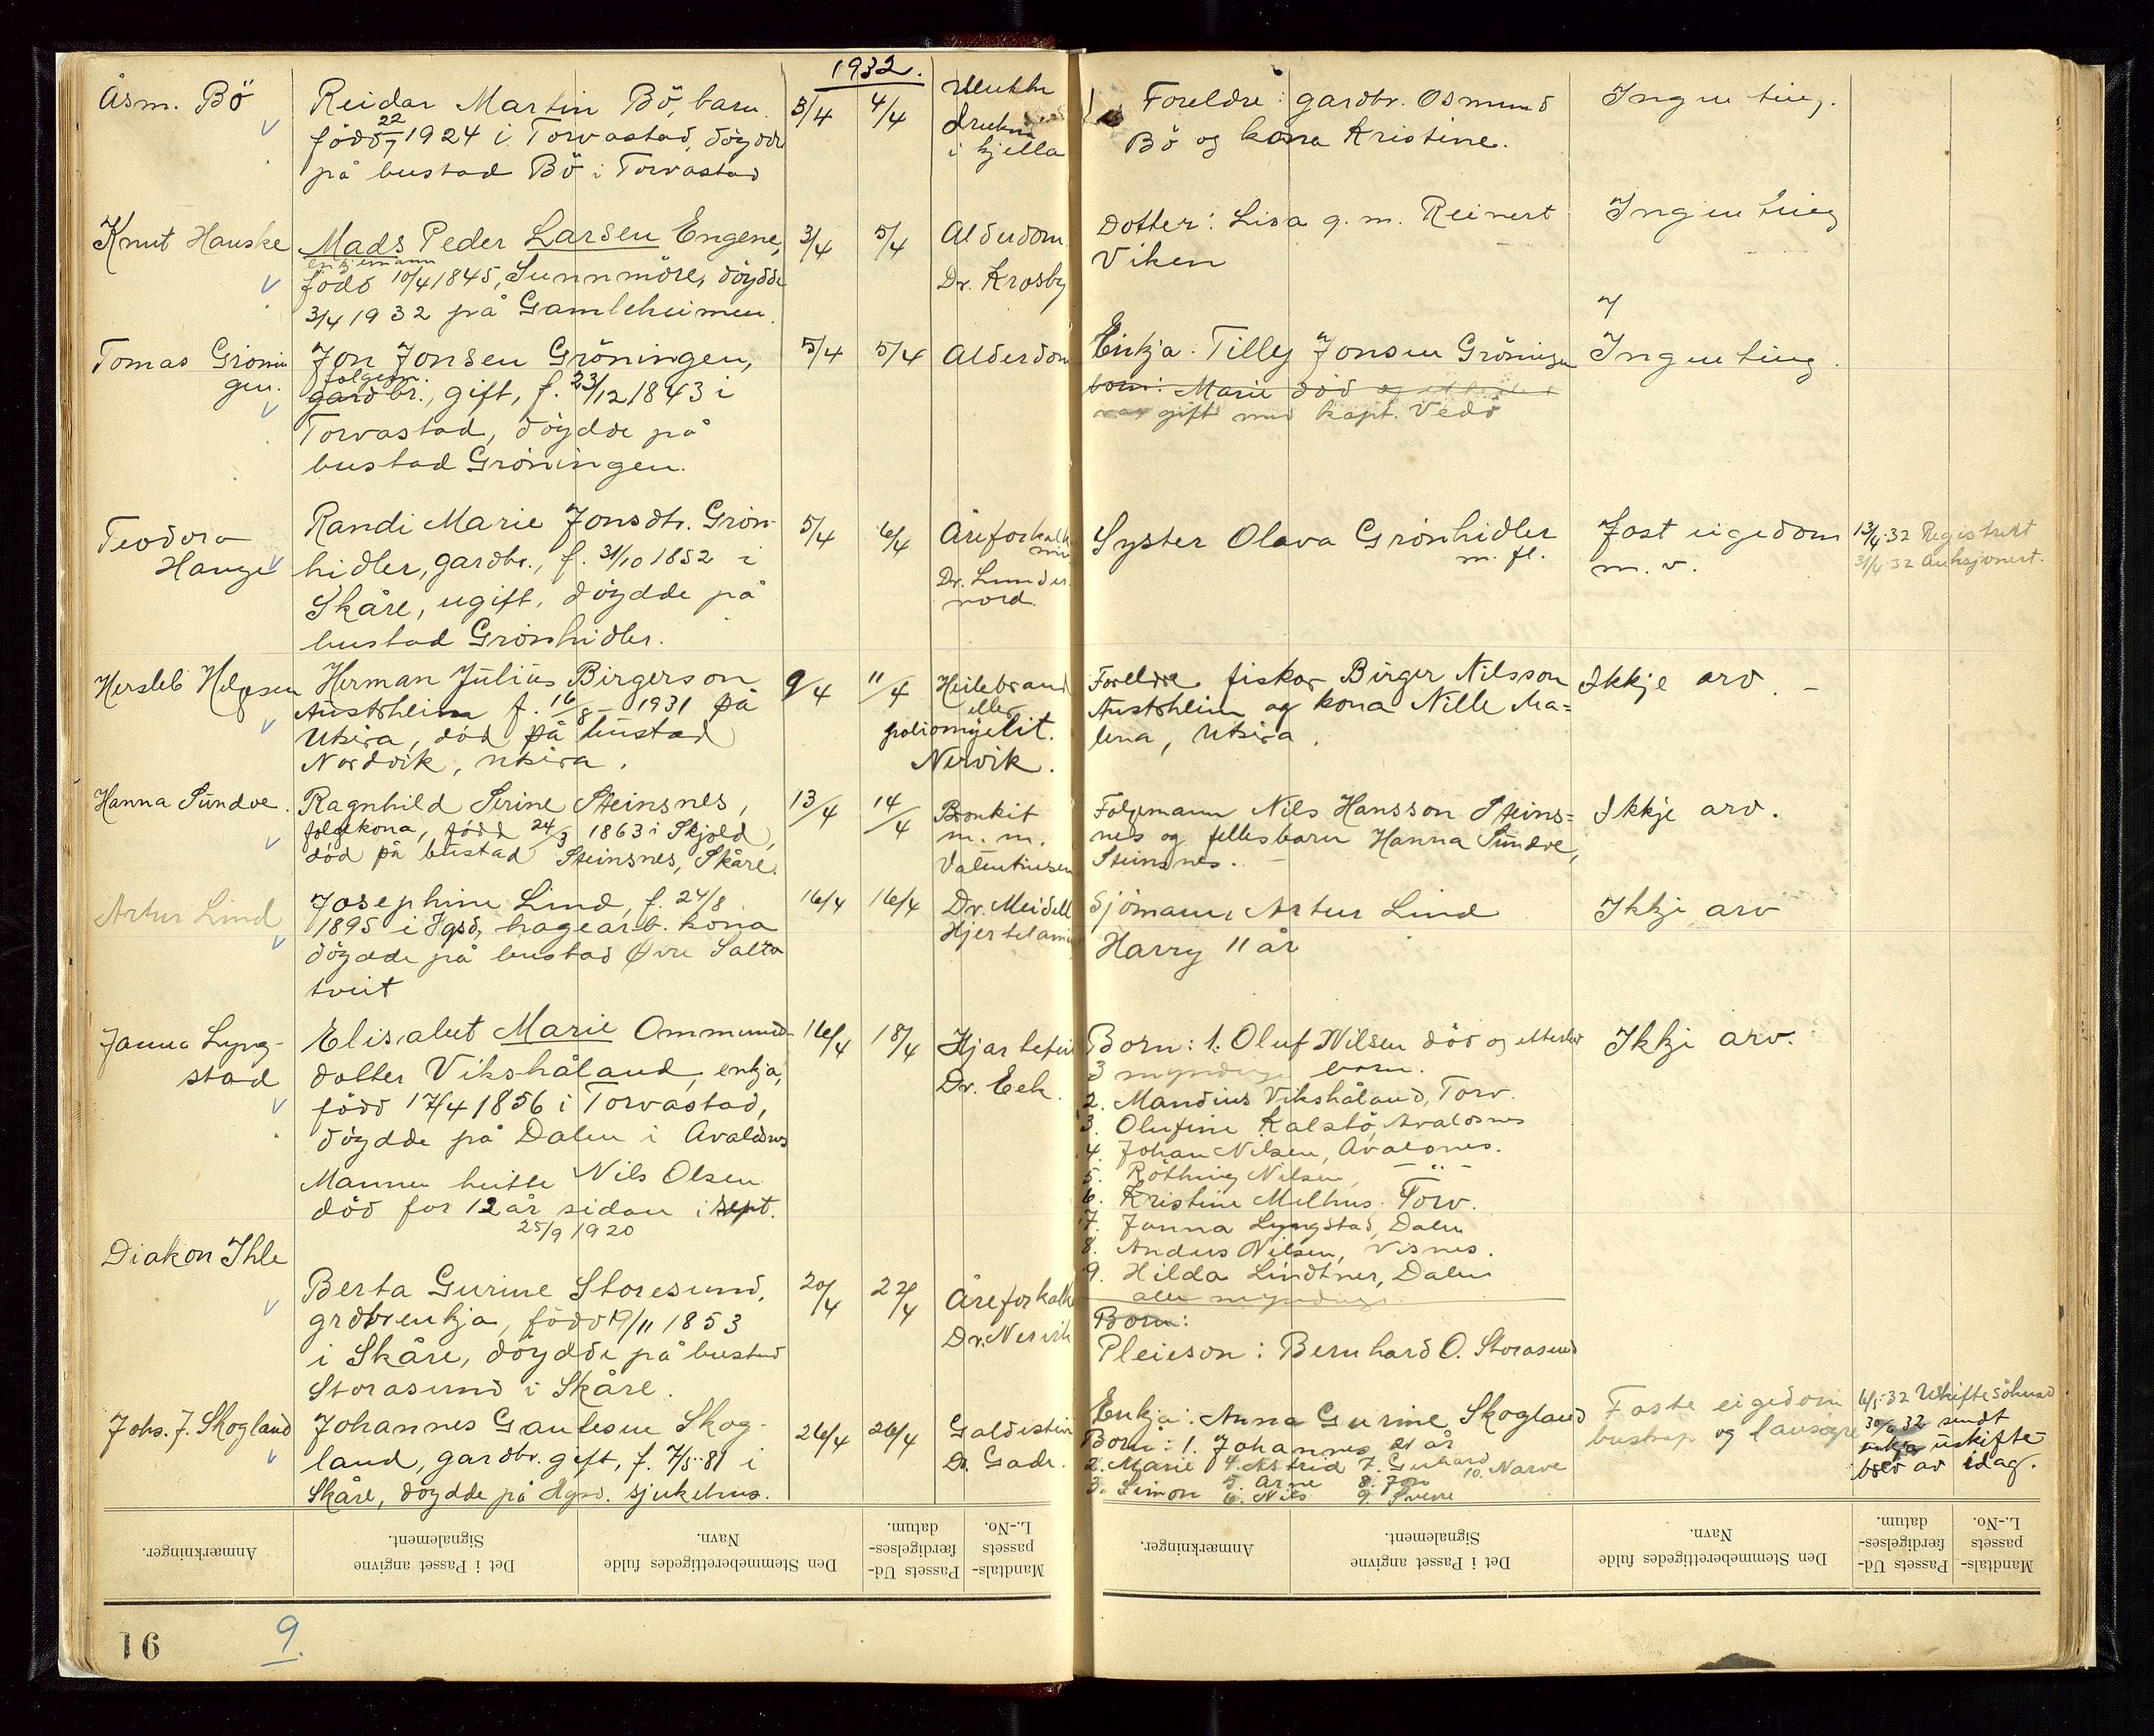 1932.
Åsm. Bö
Reidar Martin Bö, barn
född 22/7 1924 i Torvastad, döydde
på bustad Bö i Torvastad
3/4
4/4
drukna
i kjella
Foreldre: gardbr. Osmund
Bö og kona Kristine.
Ingen ting.
Knut Hauske
Mads Peder Larsen Engene,
enkjemann
född 10/4 1845, Sunnmöre, döydde
3/4 1932 på Gamleheimen.
3/4
5/4
Alderdom
Dr. Krosby
Dotter: Lisa g. m. Reinert
Viken
Ingen ting
Tomas Gronin
gen.
Jon Jonsen Gröningen,
folgem.
gardbr., gift, f. 23/12 1843 i
Torvastad, döydde på
bustad Gröningen.
5/4
5/4
Alderdom
Enkja: Tilly Jonsen Gröningen
born: Marie död
var gift med kapt. Vedö
Ingen ting.
Teodora
Hauge
Randi Marie Jonsdtr. Grön-
hidler, gardbr., f. 31/10 1852 i
Skåre, ugift, döydde på
bustad Grönhidler.
5/4
6/4
Åreforkalk
Dr. Lunde
nord.
Syster Olava Grönhidler
m. fl.
Fast eigedom
m. v.
13/4-32 Registrert
31/4-32 Auksjonert.
Hersleb Helgesen
Herman Julius Birgerson
Austrheim f. 16/8 - 1931 på
Utsira, död på bustad
Nordvik, Utsira.
9/4
11/4
Heilebrand
eller
poliomyelit.
Nervik.
Foreldre fiskar Birger Nilsson
Austrheim og kona Nille Ma=
lena, Utsira.
Ikkje arv. -
Hanna Sundve.
Ragnhild Serine Steinsnes,
folgekona, född 24/3 1863 i Skjold,
död på bustad Steinsnes, Skåre.
13/4
14/4
Bronkit
m. m.
Valentinsen
Folgemann Nils Hansson Steins=
nes og fellesbarn Hanna Sundve,
Steinsnes. -
Ikkje arv.
Artur Lind
Josephine Lind, f. 24/8
1895 i Hgsd, hagearb. kona
döydde på bustad Övre Salta
tveit
16/4
16/4
Dr. Meidell
Hjertelam
Sjömann Artur Lind
Harry 11 år
Ikkje arv
Janna Lyng-
stad
Elisabet Marie Ommund-
dotter Vikshåland, enkja,
född 17/4 1856 i Torvastad,
döydde på Dalen i Avaldsnes
Mannen heitte Nils Olsen
död for 12 år sidan i sept.
25/9 1920
16/4
18/4
Hjartefeil
Dr. Eek.
Born: 1. Oluf Nilsen död og etterlet
3 myndige born.
2. Mandius Vikshåland, Torv.
3. Olufine Kalstö, Avaldsnes
4. Johan Nilsen, Avaldsnes.
5. Röthing Nilsen, - " -
6. Kristine Melhus. Torv.
7. Janna Lyngstad, Dalen
8. Anders Nilsen, Visnes.
9. Hilda Lindtner, Dalen
alle myndige
Ikkje arv.
Diakon Ihle
Berta Gurine Storesund,
grdbrenkja, född 19/11 1853
i Skåre, döydde på bustad
Storasund i Skåre.
20/4
22/4
Åreforkalk
Dr. Nervik
Born:
Pleieson: Bernhard O. Storasund
Johs. J. Skogland
Johannes Gautesen Skog-
land, gardbr. gift, f. 7/5-81 i
Skåre, döydde på Hgsd. sjukehus.
26/4
26/4
Galdestein
Dr. Gade.
Enkja: Anna Gurine Skogland
Born: 1. Johannes 21 år
2. Marie 4. Astrid 7. Gerhard
3. Simon 5. Arne 8. Jon 10. Narve
6. Nils 9. Sverre
Faste eigedom
buskap og lausöyre
6/5-32 Uskiftesöknad
30/6 32 sendt
enkja uskifte-
brev av idag.
Anmærkninger.
Det i Passet angivne
Signalement.
Den Stemmeberettigedes fulde
Navn.
Passets Ud-
færdigelses-
datum.
Mandtals-
passets
L.-No.
Anmærkninger.
Det i Passet angivne
Signalement.
Den Stemmeberettigedes fulde
Navn.
Passets Ud-
færdigelses-
datum.
Mandtals-
passets
L.-No.
16
9.